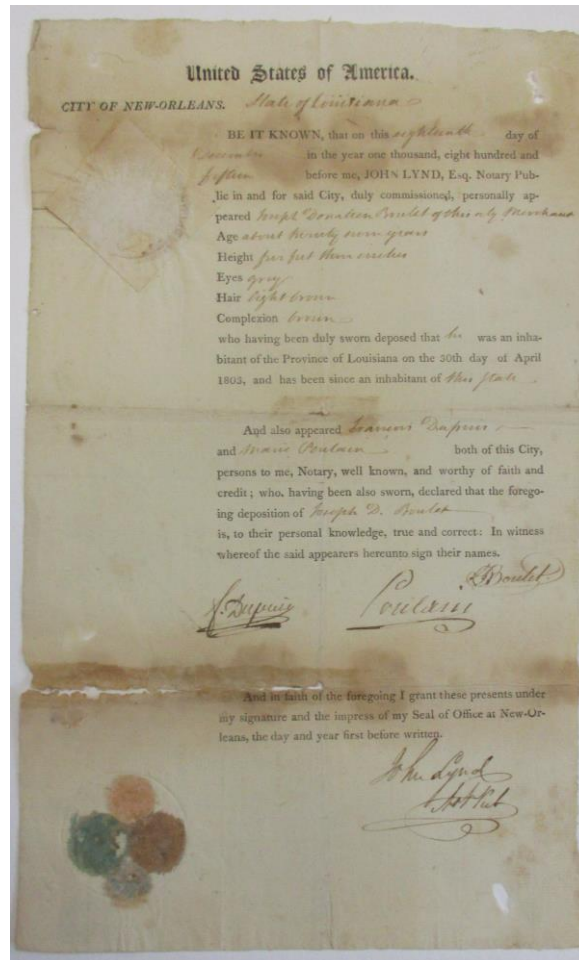 United States of America.
CITY OF NEW-ORLEANS. State of Louisiana
BE IT KNOWN, that on this eighteenth day of
December in the year one thousand, eight hundred and
fifteen before me, JOHN LYND, Esq. Notary Pub-
lic in and for said City, duly commissioned, personally ap-
peared Joseph Donatien Boulet of this city Merchant
Age about years
Height five feet three inches
Eyes grey
Hair light brown
Complexion brown
who having been duly sworn deposed that he was an inha-
bitant of the Province of Louisiana on the 30th day of April
1803, and has been since an inhabitant of this state
And also appeared Francois Dupuis
and Poulain both of this City,
persons to me, Notary, well known, and worthy of faith and
credit; who, having been also sworn, declared that the forego-
ing deposition of Joseph D. Boulet
is, to their personal knowledge, true and correct: In witness
whereof the said appearers hereunto sign their names.
Boulet
Dupuis Poulain
And in faith of the foregoing I grant these presents under
my signature and the impress of my Seal of Office at New-Or-
leans, the day and year first before written.
John Lynd
Not Pub